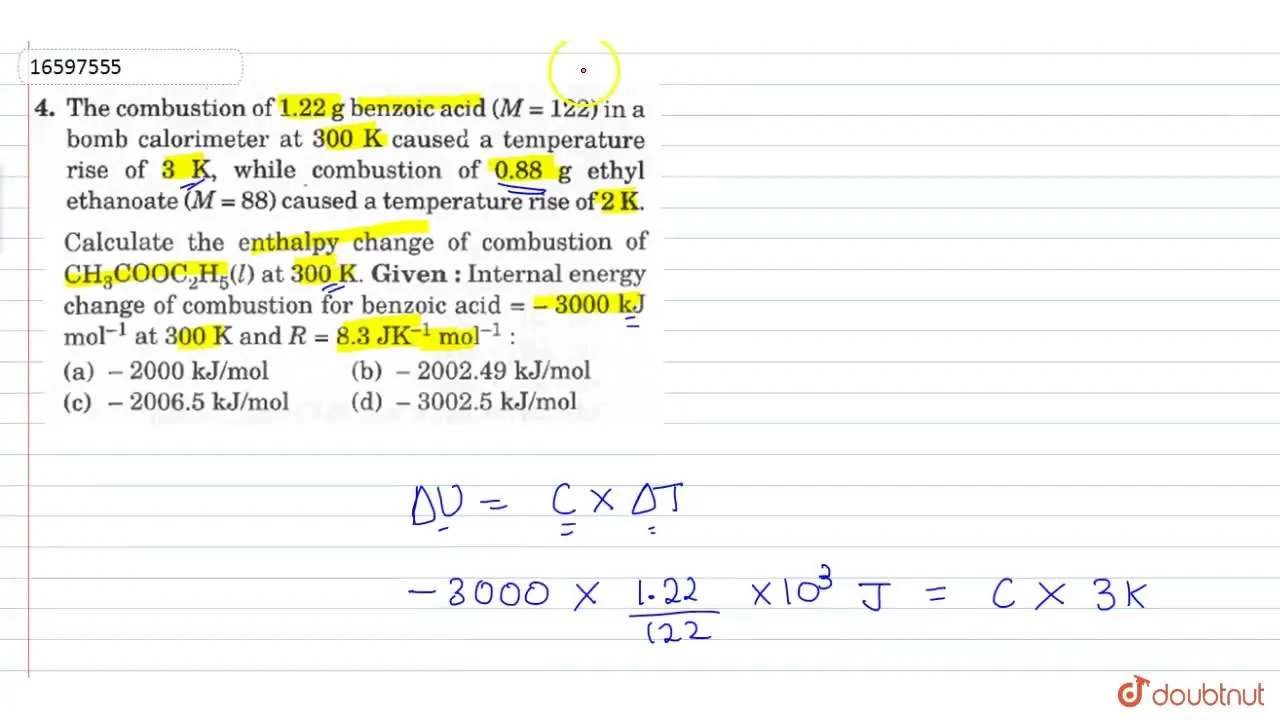 16597555
4. The combustion of 1.22 g benzoic acid (M = 122) in a
bomb calorimeter at 300 K caused a temperature
rise of 3 K, while combustion of 0.88 g ethyl
ethanoate (M = 88) caused a temperature rise of 2 K.
Calculate the enthalpy change of combustion of
CH₃COOC₂H₅(l) at 300 K. Given : Internal energy
change of combustion for benzoic acid = – 3000 kJ
mol⁻¹ at 300 K and R = 8.3 JK⁻¹ mol⁻¹ :
(a) – 2000 kJ/mol (b) – 2002.49 kJ/mol
(c) – 2006.5 kJ/mol (d) – 3002.5 kJ/mol
ΔU = C × ΔT
– 3000 × 1.22/122 × 10³ J = C × 3K
doubtnut